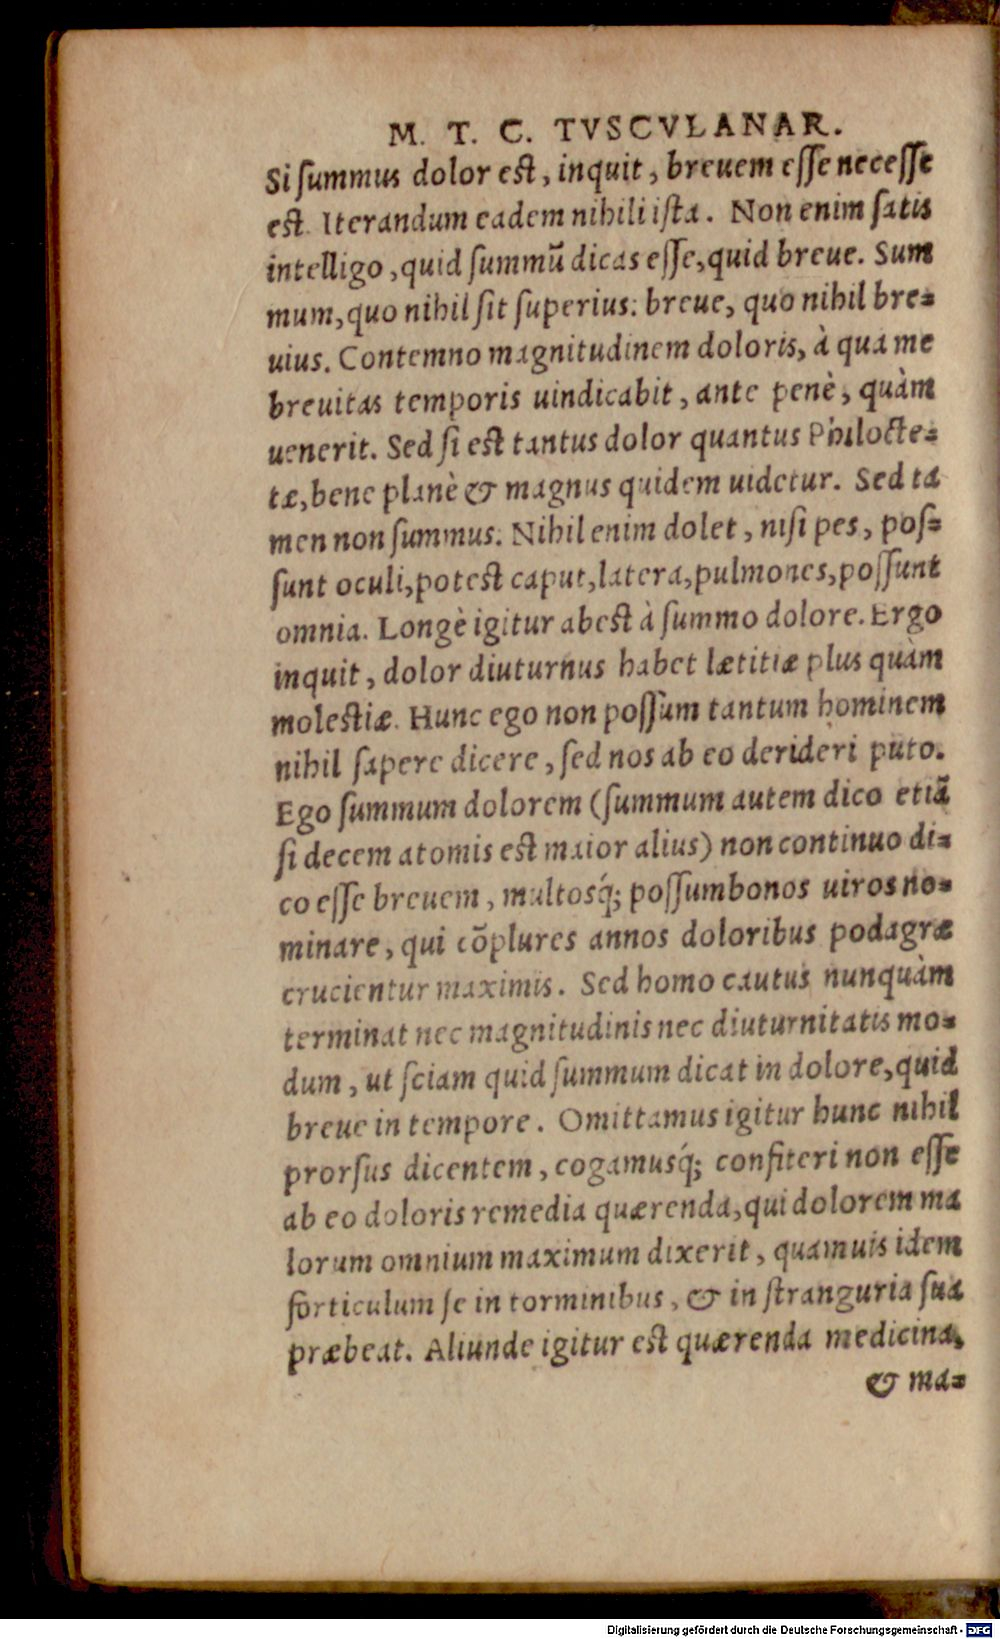 M. T. C. TVSCVLANAR.
Si ſummus dolor est, inquit, breuem eſſe neceſſe
est. Iterandum eadem nihili iſta. Non enim ſatis
intelligo, quid ſummũ dicas eſſe, quid breue. Sum
mum, quo nihil ſit ſuperius: breue, quo nihil bre=
uius. Contemno magnitudinem doloris, à qua me
breuitas temporis uindicabit, ante penè, quàm
uenerit. Sed ſi est tantus dolor quantus Philocte=
tæ, bene planè & magnus quidem uidetur. Sed ta
men non ſummus. Nihil enim dolet, niſi pes, poſ=
ſunt oculi, potest caput, latera, pulmones, poſſunt
omnia. Longè igitur abest à ſummo dolore. Ergo
inquit, dolor diuturnus habet lætitiæ plus quàm
molestiæ. Hunc ego non poſſum tantum hominem
nihil ſapere dicere, ſed nos ab eo derideri puto.
Ego ſummum dolorem (ſummum autem dico etiã
ſi decem atomis est maior alius) non continuo di=
co eſſe breuem, multosq́; poſſumbonos uiros no=
minare, qui cõplures annos doloribus podagræ
crucientur maximis. Sed homo cautus nunquàm
terminat nec magnitudinis nec diuturnitatis mo=
dum, ut ſciam quid ſummum dicat in dolore, quid
breue in tempore. Omittamus igitur hunc nihil
prorſus dicentem, cogamusq́; confiteri non eſſe
ab eo doloris remedia quærenda, qui dolorem ma
lorum omnium maximum dixerit, quamuis idem
forticulum ſe in torminibus, & in ſtranguria ſua
præbeat. Aliunde igitur est quærenda medicina,
& ma=
Digitalisierung gefördert durch die Deutsche Forschungsgemeinschaft - DFG